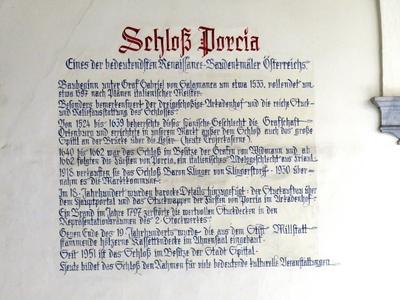 Schloß Porcia
Eines der bedeutendsten Renaissance-Baudenkmäler Österreichs.
Baubeginn unter Graf Gabriel von Salamanca um etwa 1533, vollendet um
etwa 1597 nach Plänen italienischer Meister.
Besonders bemerkenswert der dreigeschoßige Arkadenhof und die reiche Stuck-
und Reliefausstattung des Schlosses.
Von 1524 bis 1639 beherrschte dieses spanische Geschlecht die Grafschaft
Ortenburg und errichtete in unserem Markt außer dem Schloß auch das große
Spittal an der Brücke über die Lieser (heute Bezirksgericht)
1640 bis 1662 war das Schloß im Besitze der Grafen von Widmann und ab
1662 folgten die Fürsten von Porcia, ein italienisches Adelsgeschlecht aus Friaul.
1918 verkauften sie das Schloß Baron Klinger von Klingerstorff - 1930 über-
nahm es die Marktkommune.
Im 18. Jahrhundert wurden barocke Details hinzugefügt: der Stuckaufbau über
dem Hauptportal und das Stuckwappen der Fürsten von Porcia im Arkadenhof.
Ein Brand im Jahre 1797 zerstörte die wertvollen Stuckdecken in den
Repräsentationsräumen des 2. Stockwerkes.
Gegen Ende des 19. Jahrhunderts wurde die aus dem Stift Millstatt
stammende hölzerne Kassettendecke im Ahnensaal eingebaut.
Seit 1951 ist das Schloß im Besitze der Stadt Spittal.
Heute bildet das Schloß den Rahmen für viele bedeutende kulturelle Veranstaltungen